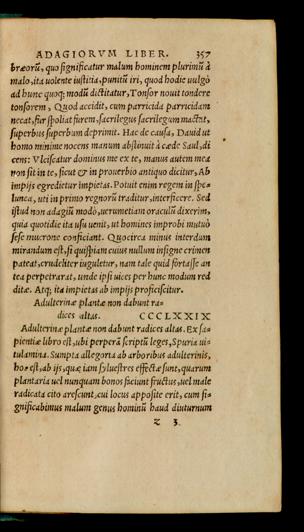 ADAGIORVM LIBER. 357
bræorũ, quo significatur malum hominem plurimũ à
malo, ita uolente iustitia, punitũ iri, quod hodie uulgò
ad hunc quoq; modũ dictitatur, Tonsor noui tondere
tonsorem, Quod accidit, cum parricida parricidam
necat, fur spoliat furem, sacrilegus sacrilegum mactat,
superbus superbum deprimit. Hac de causa, Dauid ut
homo minime nocens manum abstinuit à cæde Saul, di
cens: Vlciscatur dominus me ex te, manus autem mea
non sit in te, sicut & in prouerbio antiquo dicitur, Ab
impijs egredietur impietas. Potuit enim regem in spe-
lunca, uti in primo regnorũ traditur, interficere. Sed
istud non adagiũ modò, uerumetiam oraculũ dixerim,
quia quotidie ita usu uenit, ut homines improbi mutuò
sese mucrone conficiant. Quocirca minus interdum
mirandum est, si quispiam cuius nullum insigne crimen
pateat, crudeliter iuguletur, nam tale quid fortasse an
tea perpetrarat, unde ipsi uices per hunc modum red
ditæ. Atq; ita impietas ab impijs proficiscitur.
Adulterinæ plantæ non dabunt ra-
dices altas. CCCLXXIX
Adulterinæ plantæ non dabunt radices altas. Ex sa-
pientiæ libro est, ubi perperã scriptũ leges, Spuria ui-
tulamina. Sumpta allegoria ab arboribus adulterinis,
hoc est, ab ijs, quæ iam syluestres effectæ sunt, quarum
plantaria uel nunquam bonos faciunt fructus, uel male
radicata cito arescunt, cui locus apposite erit, cum si-
gnificabimus malum genus hominũ haud diuturnum
z 3